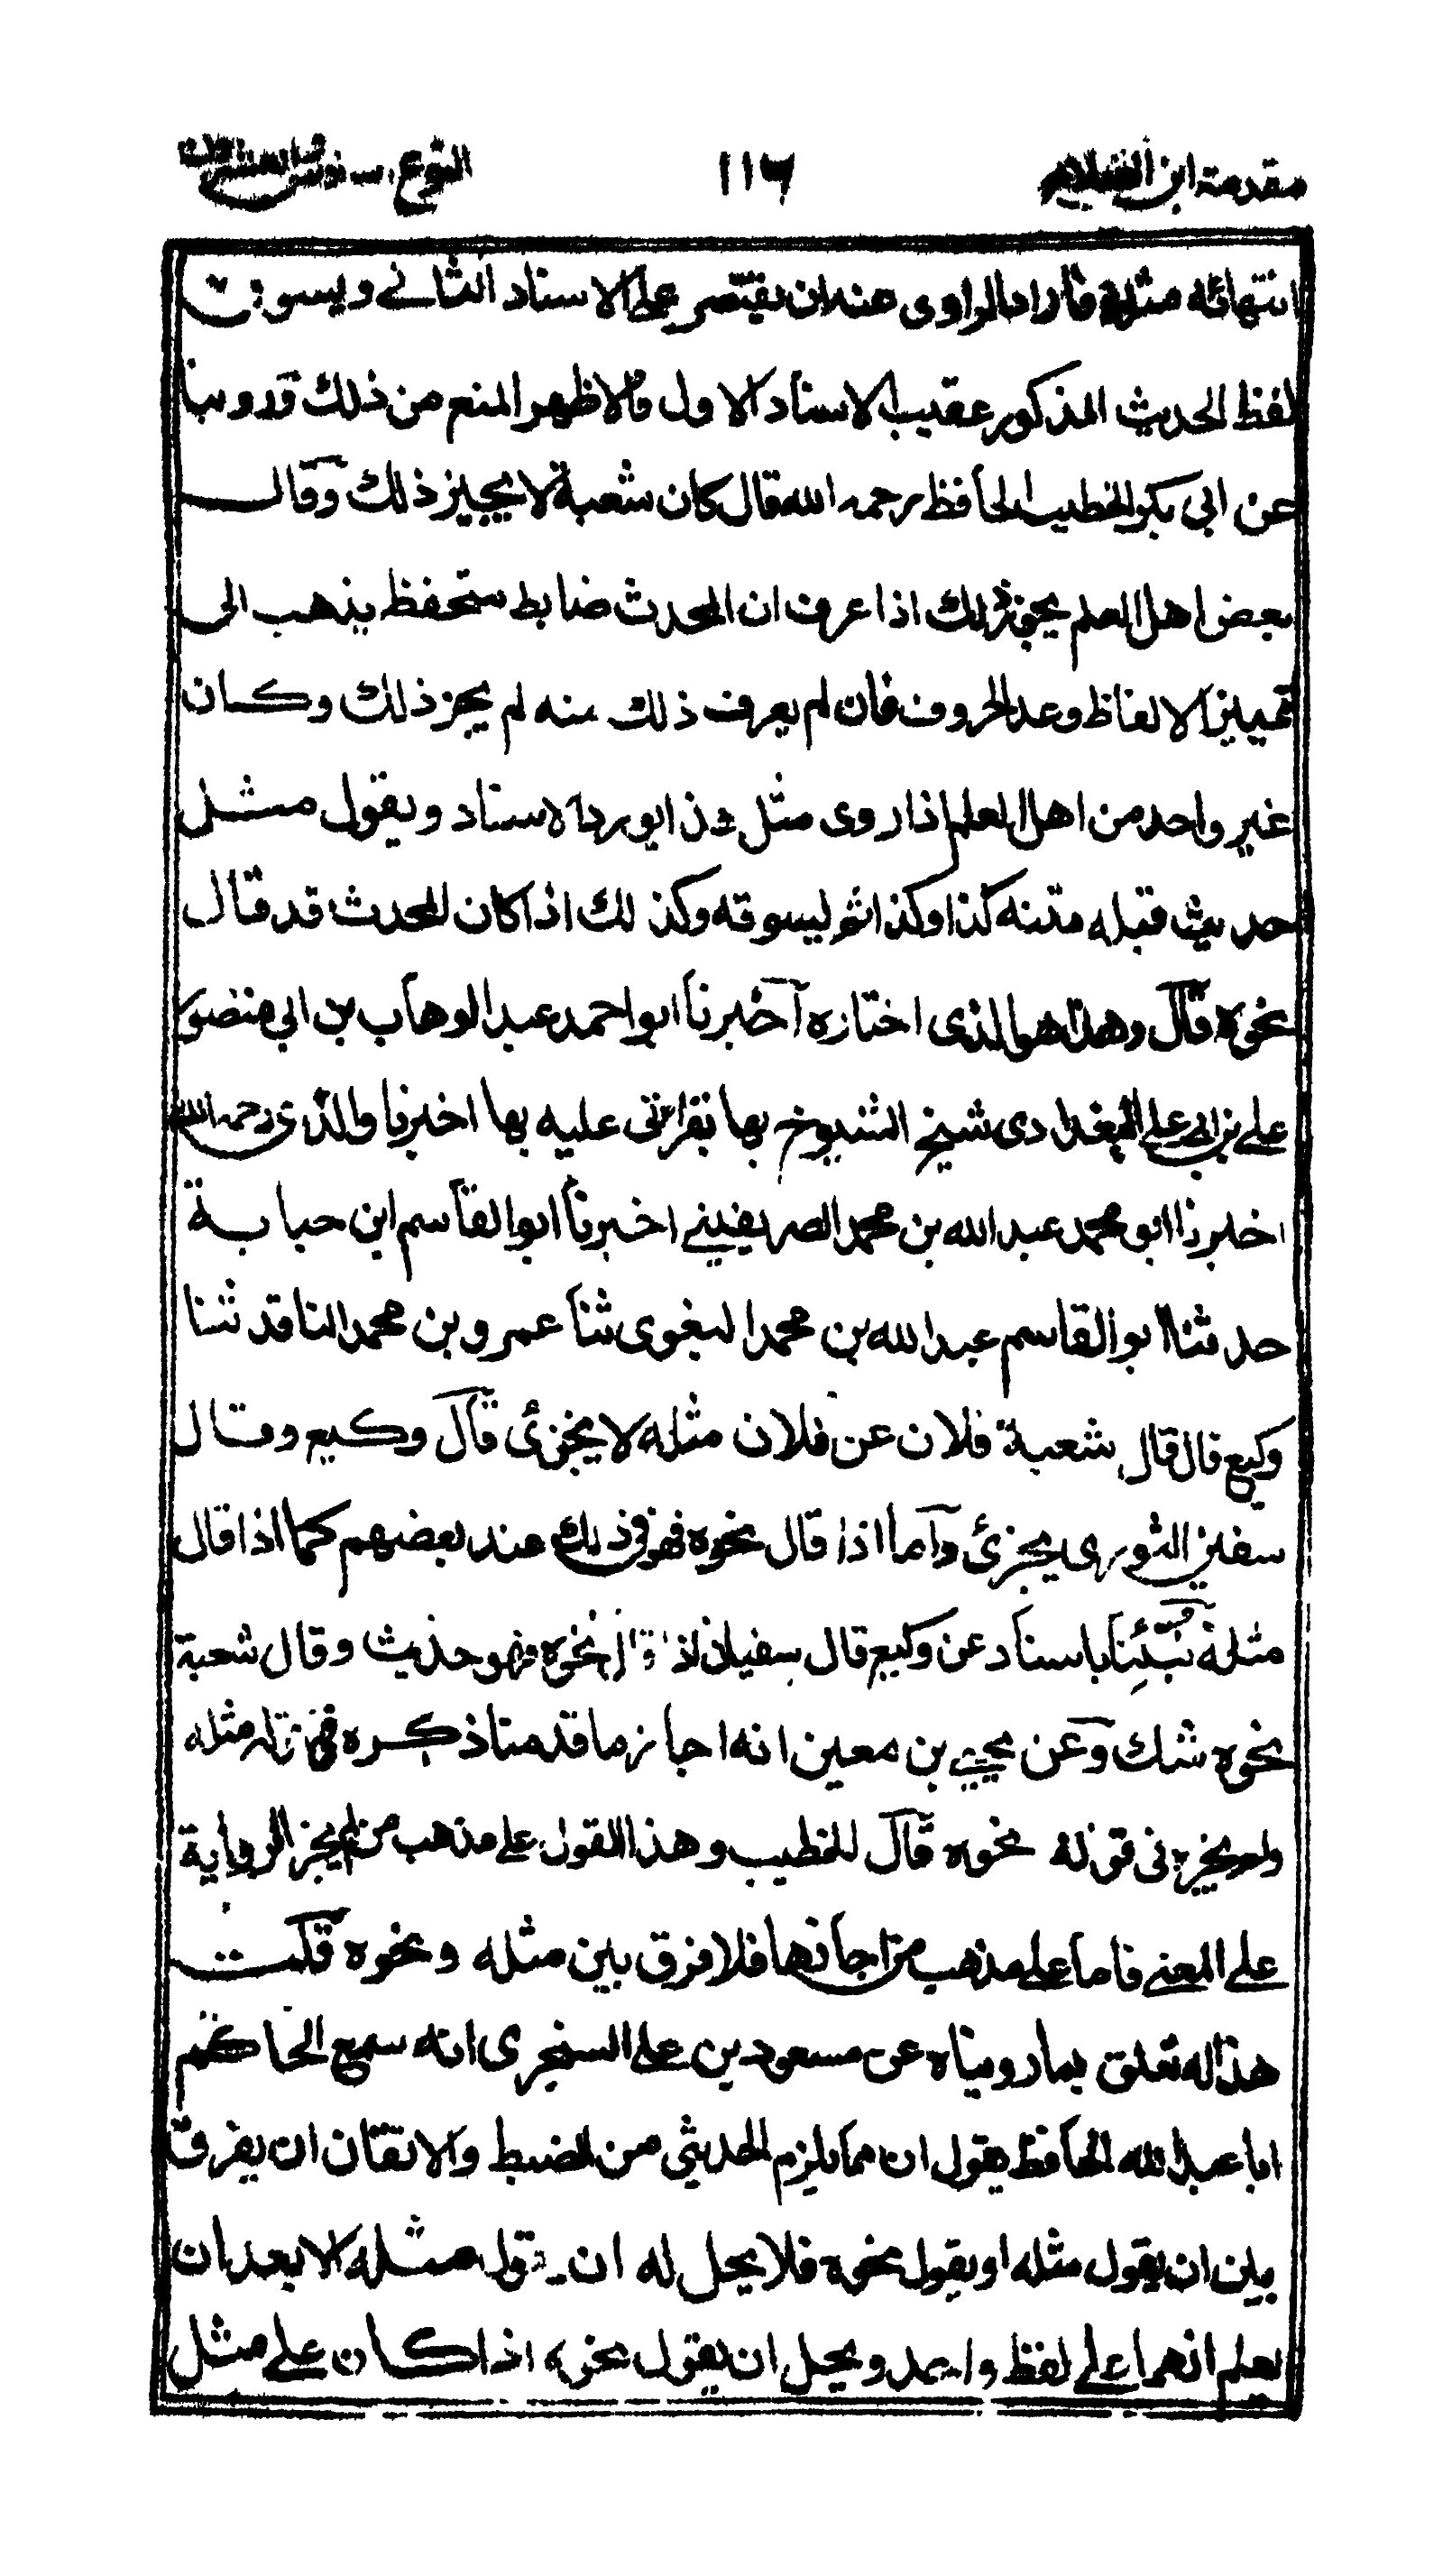 مقدمة ابن الصلاح ١١٦ النوع السادس والعشرون
انتهائه مثله فأراد الراوى عنه ان يقتصر على الاسناد الثانى ويسوق
لفظ الحديث المذكور عقيب الاسناد الاول فالاظهر المنع من ذلك وروينا
عن ابى بكر الخطيب الحافظ رحمه الله قال كان شعبة لا يجيز ذلك وقال
بعض اهل العلم يجوز ذلك اذا عرف ان المحدث ضابط متحفظ يذهب الى
تمييز الالفاظ وعد الحروف فان لم يعرف ذلك منه لم يجز ذلك وكان
غير واحد من اهل العلم اذا روى مثل هذا يورد الاسناد ويقول مثل
حديث قبله متنه كذا وكذا ثم يسوقه وكذلك اذا كان المحدث قد قال
نحوه قال وهذا هو الذى اختاره اخبرنا ابو احمد عبد الوهاب بن ابى منصور
على بن على البغدادى شيخ الشيوخ بها بقرائتى عليه بها اخبرنا والدى رحمه الله
اخبرنا ابو محمد عبد الله بن محمد الصريفينى اخبرنا ابو القاسم ابن حبابة
حدثنا ابو القاسم عبد الله بن محمد البغوى ثنا عمرو بن محمد الناقد ثنا
وكيع قال قال شعبة فلان عن فلان مثله لا يجزئ قال وكيع وقال
سفين الثورى يجزئ واما اذا قال نحوه فهو فى ذلك عند بعضهم كما اذا قال
مثله نبئنا باسناد عن وكيع قال سفيان اذا قال نحوه فهو حديث وقال شعبة
نحوه شك وعن يحيى بن معين انه اجاز ما قدمنا ذكره فى قوله مثله
ولم يجزه فى قوله نحوه قال الخطيب وهذا القول على مذهب من لم يجز الرواية
على المعنى فاما على مذهب من اجازها فلا فرق بين مثله ونحوه قلت
هذا له تعلق بما رويناه عن مسعود بن على السنجرى انه سمع الحاكم
ابا عبد الله الحافظ يقول ان مما يلزم الحديثى من الضبط والاتقان ان يفرق
بين ان يقول مثله او يقول نحوه فلا يحل له ان يقول مثله الا بعد ان
يعلم انهما على لفظ واحد ويحل ان يقول نحوه اذا كان على مثل